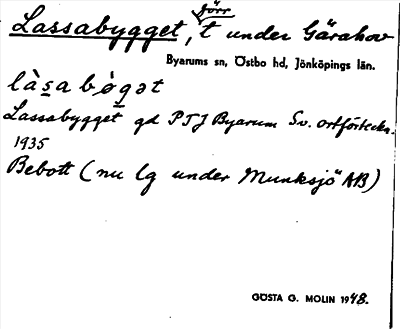 Lassabygget, förr t under Gårahov
Byarums sn, Östbo hd, Jönköpings län.
làsabøgət
Lassabygget gd PTJ Byarum Sv. ortförteckn.
1935
Bebott (nu lg under Munksjö AB)
GÖSTA G. MOLIN 1948.